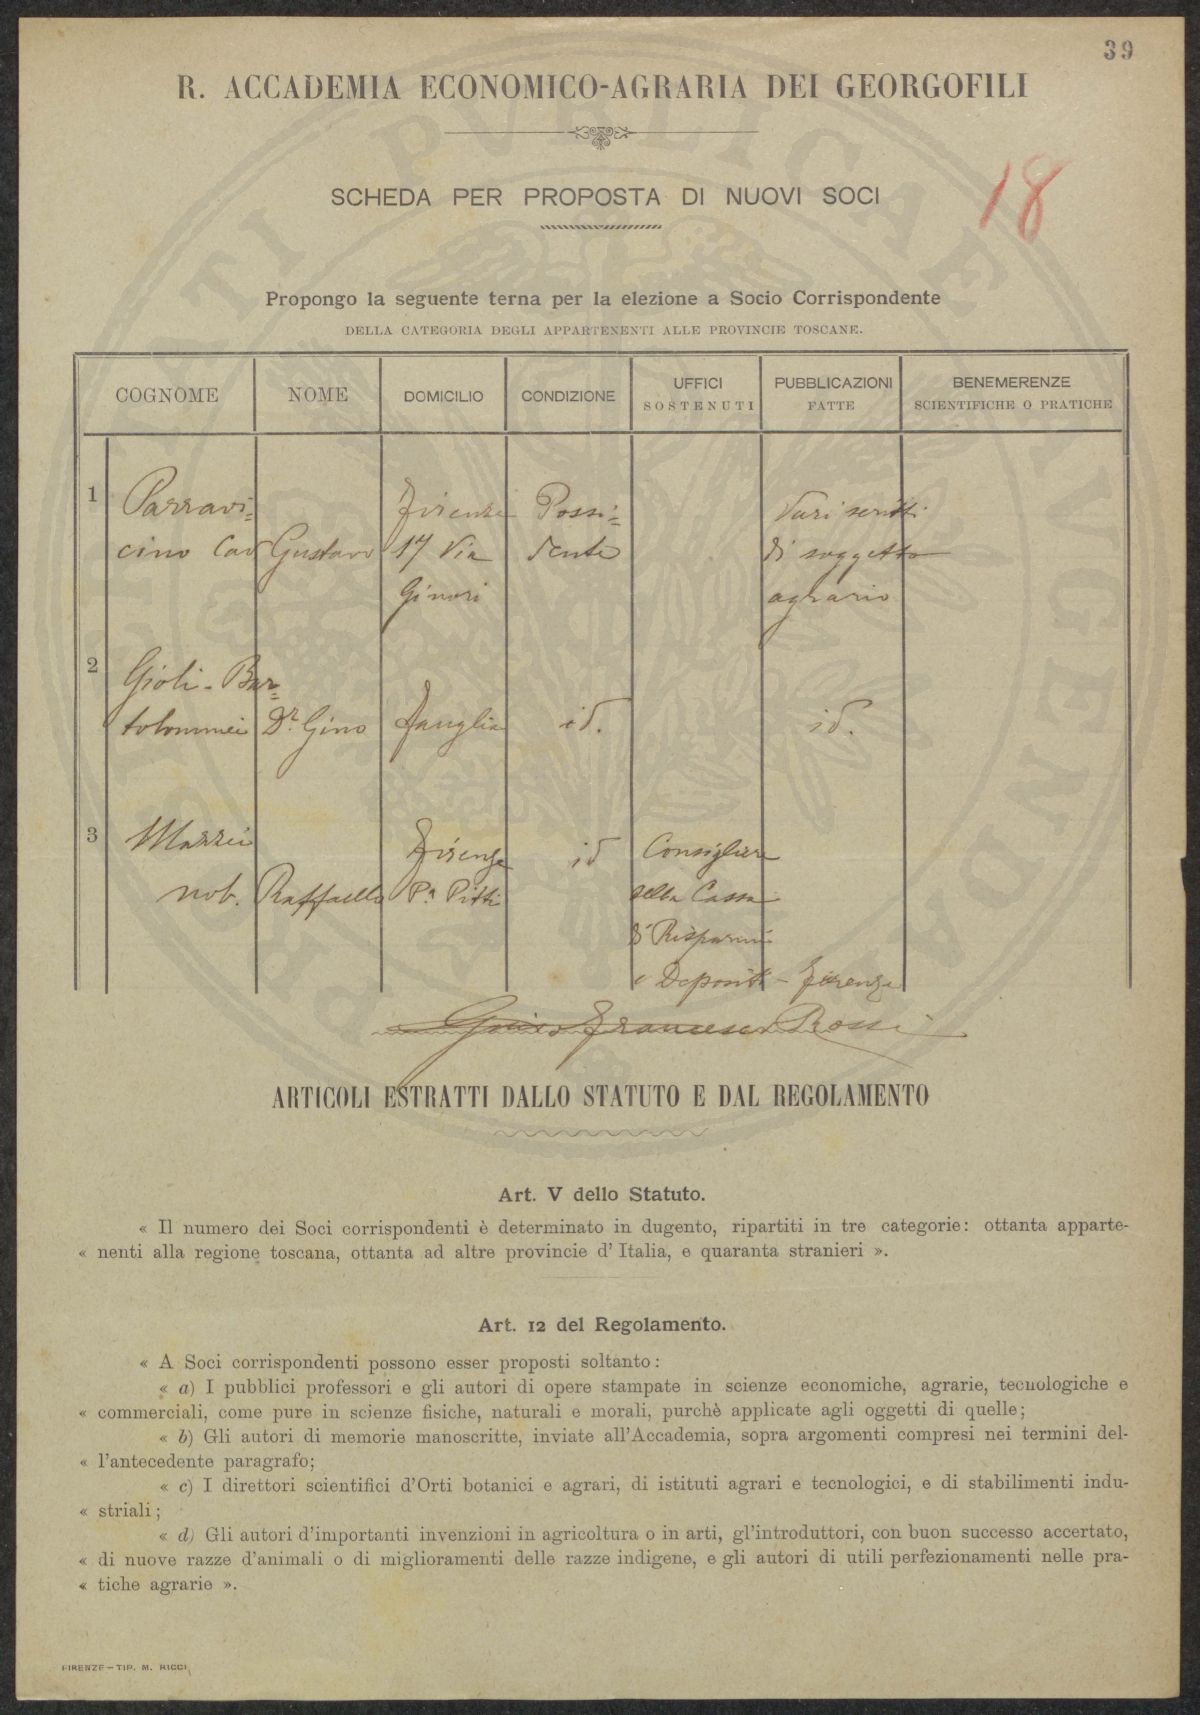 39
R. ACCADEMIA ECONOMICO-AGRARIA DEI GEORGOFILI
18
SCHEDA PER PROPOSTA DI NUOVI SOCI
Propongo la seguente terna per la elezione a Socio Corrispondente
DELLA CATEGORIA DEGLI APPARTENENTI ALLE PROVINCIE TOSCANE.
COGNOME NOME DOMICILIO CONDIZIONE UFFICI SOSTENUTI PUBBLICAZIONI FATTE BENEMERENZE SCIENTIFICHE O PRATICHE
1 Parravi= Firenze Possi= Vari scritti
cino Cav Gustavo 17 Via dente di soggetto
Ginori agrario
2 Gioli-Bar=
tolommei Dr. Gino Fauglia id. id.
3 Mazzei Firenze id Consigliere
nob. Raffaello Pa Pitti della Cassa
di Risparmi
e Depositi - Firenze
Guido Francesco Rossi
ARTICOLI ESTRATTI DALLO STATUTO E DAL REGOLAMENTO
Art. V dello Statuto.
« Il numero dei Soci corrispondenti è determinato in dugento, ripartiti in tre categorie: ottanta apparte-
« nenti alla regione toscana, ottanta ad altre provincie d'Italia, e quaranta stranieri ».
Art. 12 del Regolamento.
« A Soci corrispondenti possono esser proposti soltanto:
« a) I pubblici professori e gli autori di opere stampate in scienze economiche, agrarie, tecnologiche e
« commerciali, come pure in scienze fisiche, naturali e morali, purchè applicate agli oggetti di quelle;
« b) Gli autori di memorie manoscritte, inviate all'Accademia, sopra argomenti compresi nei termini del-
« l'antecedente paragrafo;
« c) I direttori scientifici d'Orti botanici e agrari, di istituti agrari e tecnologici, e di stabilimenti indu-
« striali;
« d) Gli autori d'importanti invenzioni in agricoltura o in arti, gl'introduttori, con buon successo accertato,
« di nuove razze d'animali o di miglioramenti delle razze indigene, e gli autori di utili perfezionamenti nelle pra-
« tiche agrarie ».
FIRENZE—TIP. M. RICCI
PROSPERITATI PVBLICAE AVGENDAE